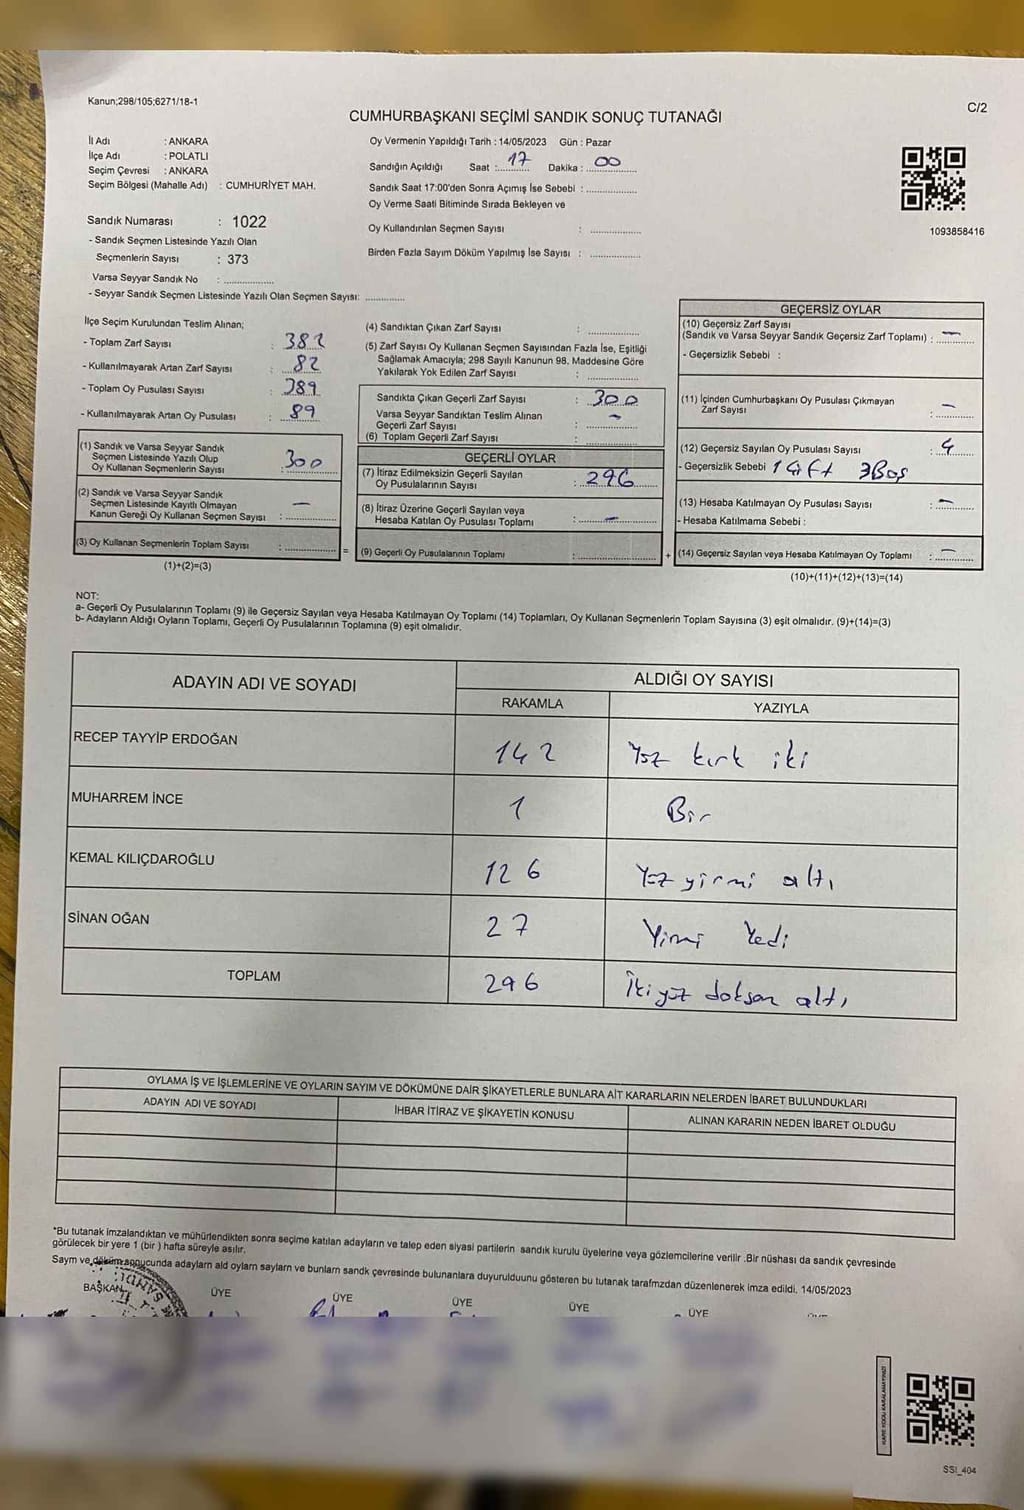 Kanun;298/105;6271/18-1
C/2
CUMHURBAŞKANI SEÇİMİ SANDIK SONUÇ TUTANAĞI
İl Adı : ANKARA
İlçe Adı : POLATLI
Seçim Çevresi : ANKARA
Seçim Bölgesi (Mahalle Adı) : CUMHURİYET MAH.
Sandık Numarası : 1022
- Sandık Seçmen Listesinde Yazılı Olan
Seçmenlerin Sayısı : 373
Varsa Seyyar Sandık No : ................
- Seyyar Sandık Seçmen Listesinde Yazılı Olan Seçmen Sayısı: ............
Oy Vermenin Yapıldığı Tarih : 14/05/2023 Gün : Pazar
Sandığın Açıldığı Saat : 17 Dakika : 00
Sandık Saat 17:00'den Sonra Açımış İse Sebebi : ................
Oy Verme Saati Bitiminde Sırada Bekleyen ve
Oy Kullandırılan Seçmen Sayısı : ................
Birden Fazla Sayım Döküm Yapılmış İse Sayısı : ................
1093858416
İlçe Seçim Kurulundan Teslim Alınan;
- Toplam Zarf Sayısı : 382
- Kullanılmayarak Artan Zarf Sayısı : 82
- Toplam Oy Pusulası Sayısı : 389
- Kullanılmayarak Artan Oy Pusulası : 89
(1) Sandık ve Varsa Seyyar Sandık
Seçmen Listesinde Yazılı Olup
Oy Kullanan Seçmenlerin Sayısı : 300
(2) Sandık ve Varsa Seyyar Sandık
Seçmen Listesinde Kayıtlı Olmayan
Kanun Gereği Oy Kullanan Seçmen Sayısı : —
(3) Oy Kullanan Seçmenlerin Toplam Sayısı : ................ =
(1)+(2)=(3)
(4) Sandıktan Çıkan Zarf Sayısı : ................
(5) Zarf Sayısı Oy Kullanan Seçmen Sayısından Fazla İse, Eşitliği
Sağlamak Amacıyla; 298 Sayılı Kanunun 98. Maddesine Göre
Yakılarak Yok Edilen Zarf Sayısı : ................
Sandıkta Çıkan Geçerli Zarf Sayısı : 300
Varsa Seyyar Sandıktan Teslim Alınan
Geçerli Zarf Sayısı : —
(6) Toplam Geçerli Zarf Sayısı : ................
GEÇERLİ OYLAR
(7) İtiraz Edilmeksizin Geçerli Sayılan
Oy Pusulalarının Sayısı : 296
(8) İtiraz Üzerine Geçerli Sayılan veya
Hesaba Katılan Oy Pusulası Toplamı : —
(9) Geçerli Oy Pusulalarının Toplamı : ................ +
GEÇERSİZ OYLAR
(10) Geçersiz Zarf Sayısı
(Sandık ve Varsa Seyyar Sandık Geçersiz Zarf Toplamı) : —
- Geçersizlik Sebebi :
(11) İçinden Cumhurbaşkanı Oy Pusulası Çıkmayan
Zarf Sayısı : —
(12) Geçersiz Sayılan Oy Pusulası Sayısı : 4
- Geçersizlik Sebebi 1 Çift 3 Boş
(13) Hesaba Katılmayan Oy Pusulası Sayısı : —
- Hesaba Katılmama Sebebi :
(14) Geçersiz Sayılan veya Hesaba Katılmayan Oy Toplamı : —
(10)+(11)+(12)+(13)=(14)
NOT:
a- Geçerli Oy Pusulalarının Toplamı (9) ile Geçersiz Sayılan veya Hesaba Katılmayan Oy Toplamı (14) Toplamları, Oy Kullanan Seçmenlerin Toplam Sayısına (3) eşit olmalıdır. (9)+(14)=(3)
b- Adayların Aldığı Oyların Toplamı, Geçerli Oy Pusulalarının Toplamına (9) eşit olmalıdır.
ADAYIN ADI VE SOYADI
ALDIĞI OY SAYISI
RAKAMLA YAZIYLA
RECEP TAYYİP ERDOĞAN 142 Yüz kırk iki
MUHARREM İNCE 1 Bir
KEMAL KILIÇDAROĞLU 126 Yüz yirmi altı
SİNAN OĞAN 27 Yirmi Yedi
TOPLAM 296 İkiyüz doksan altı
OYLAMA İŞ VE İŞLEMLERİNE VE OYLARIN SAYIM VE DÖKÜMÜNE DAİR ŞİKAYETLERLE BUNLARA AİT KARARLARIN NELERDEN İBARET BULUNDUKLARI
ADAYIN ADI VE SOYADI İHBAR İTİRAZ VE ŞİKAYETİN KONUSU ALINAN KARARIN NEDEN İBARET OLDUĞU
*Bu tutanak imzalandıktan ve mühürlendikten sonra seçime katılan adayların ve talep eden siyasi partilerin sandık kurulu üyelerine veya gözlemcilerine verilir .Bir nüshası da sandık çevresinde
görülecek bir yere 1 (bir ) hafta süreyle asılır.
Saym ve döküm sonucunda adaylarn ald oylarn saylarn ve bunlarn sandk çevresinde bulunanlara duyurulduunu gösteren bu tutanak tarafmzdan düzenlenerek imza edildi. 14/05/2023
BAŞKAN ÜYE ÜYE ÜYE ÜYE ÜYE
SSI_404